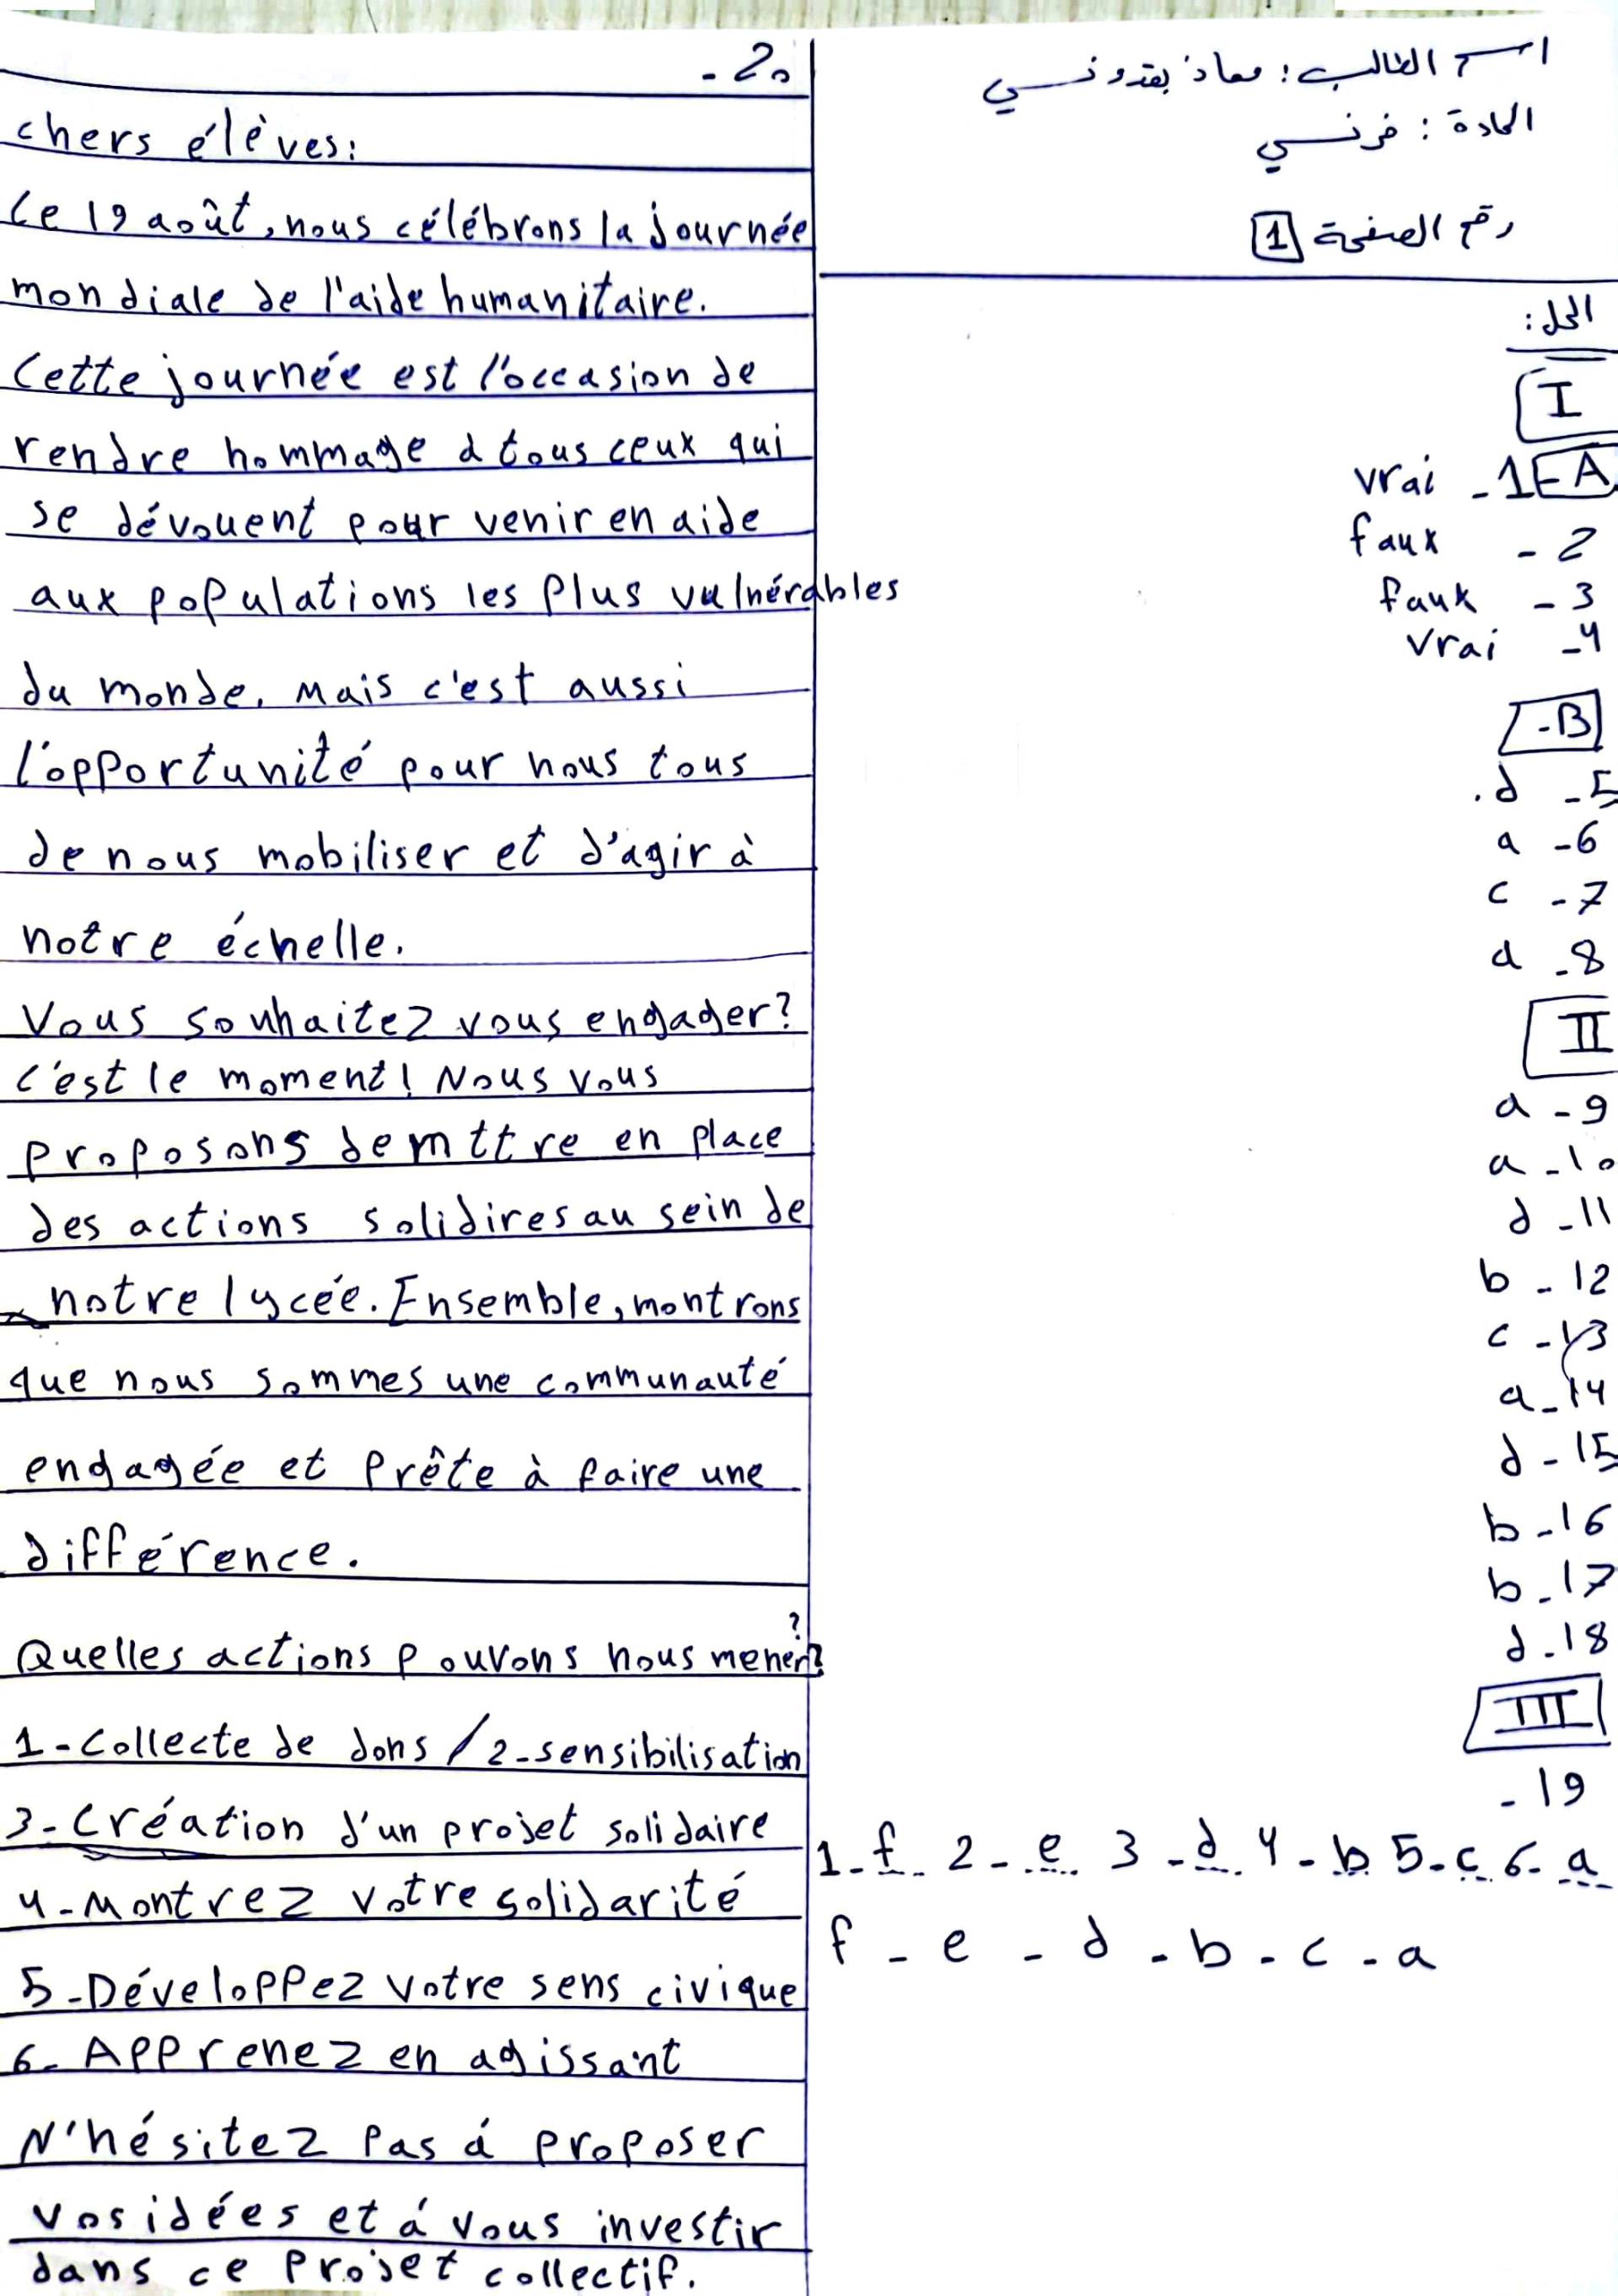 اسم الطالب: معاذ بقدونسي
المادة: فرنسي
رقم الصفحة 1
الحل:
I
A - 1 - vrai
2 - faux
3 - faux
4 - vrai
B -
5 - d.
6 - a
7 - c
8 - d
II
9 - a
10 - a
11 - d
12 - b
13 - c
14 - a
15 - d
16 - b
17 - b
18 - d
III
19 -
1 - f 2 - e 3 - d 4 - b 5 - c 6 - a
f - e - d - b - c - a
20 -
chers élèves:
Le 19 août, nous célébrons la journée
mondiale de l'aide humanitaire.
Cette journée est l'occasion de
rendre hommage à tous ceux qui
se dévouent pour venir en aide
aux populations les plus vulnérables
du monde. Mais c'est aussi
l'opportunité pour nous tous
de nous mobiliser et d'agir à
notre échelle.
Vous souhaitez vous engager?
c'est le moment! Nous vous
proposons de mttre en place
des actions solidires au sein de
notre lycée. Ensemble, montrons
que nous sommes une communauté
engagée et prête à faire une
différence.
Quelles actions pouvons nous mener?
1 - Collecte de dons / 2 - sensibilisation
3 - Création d'un projet solidaire
4 - Montrez votre solidarité
5 - Développez votre sens civique
6 - Apprenez en agissant
N'hésitez pas á proposer
vos idées et á vous investir
dans ce projet collectif.